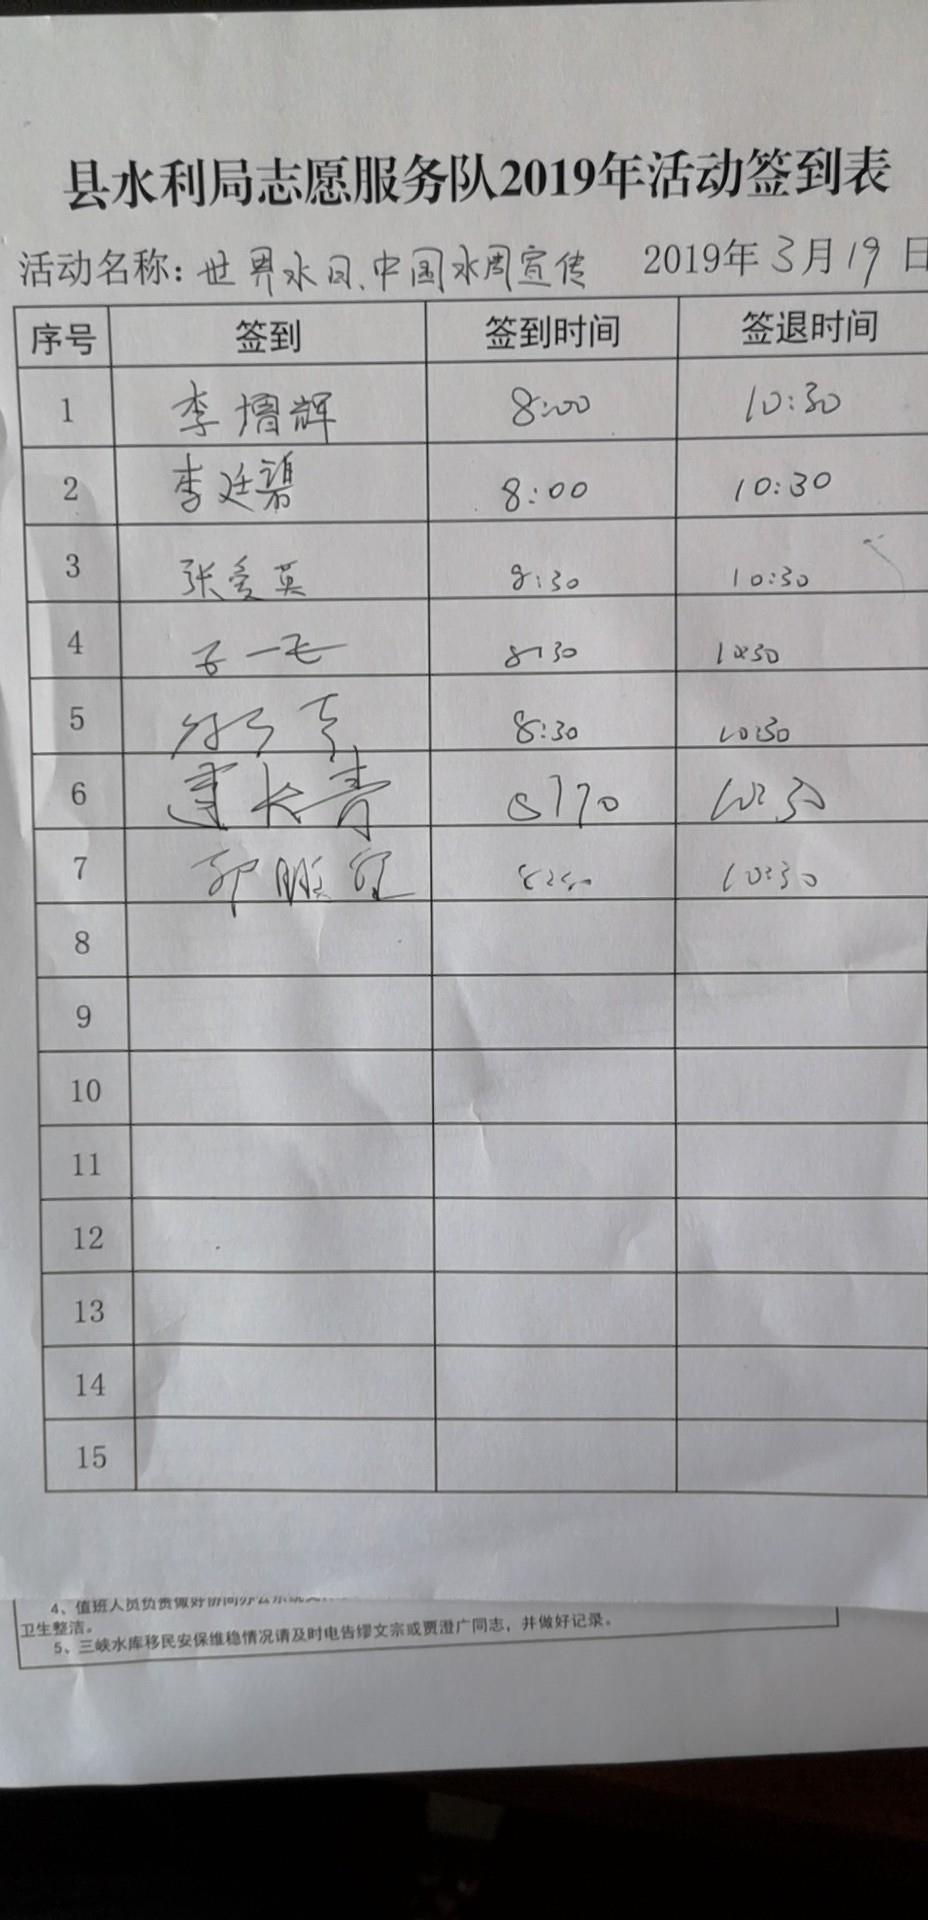 县水利局志愿服务队2019年活动签到表
活动名称：世界水日、中国水周宣传 2019年3月19日
序号 签到 签到时间 签退时间
1 李增辉 8:00 10:30
2 李廷碧 8:00 10:30
3 张爱英 8:30 10:30
4 8:30 10:30
5 8:30 10:30
6 长青 10:30
7 郭 10:30
8
9
10
11
12
13
14
15
4、值班人员负责做好协同办公系统
卫生整洁。
5、三峡水库移民安保维稳情况请及时电告缪文宗或贾澄广同志，并做好记录。